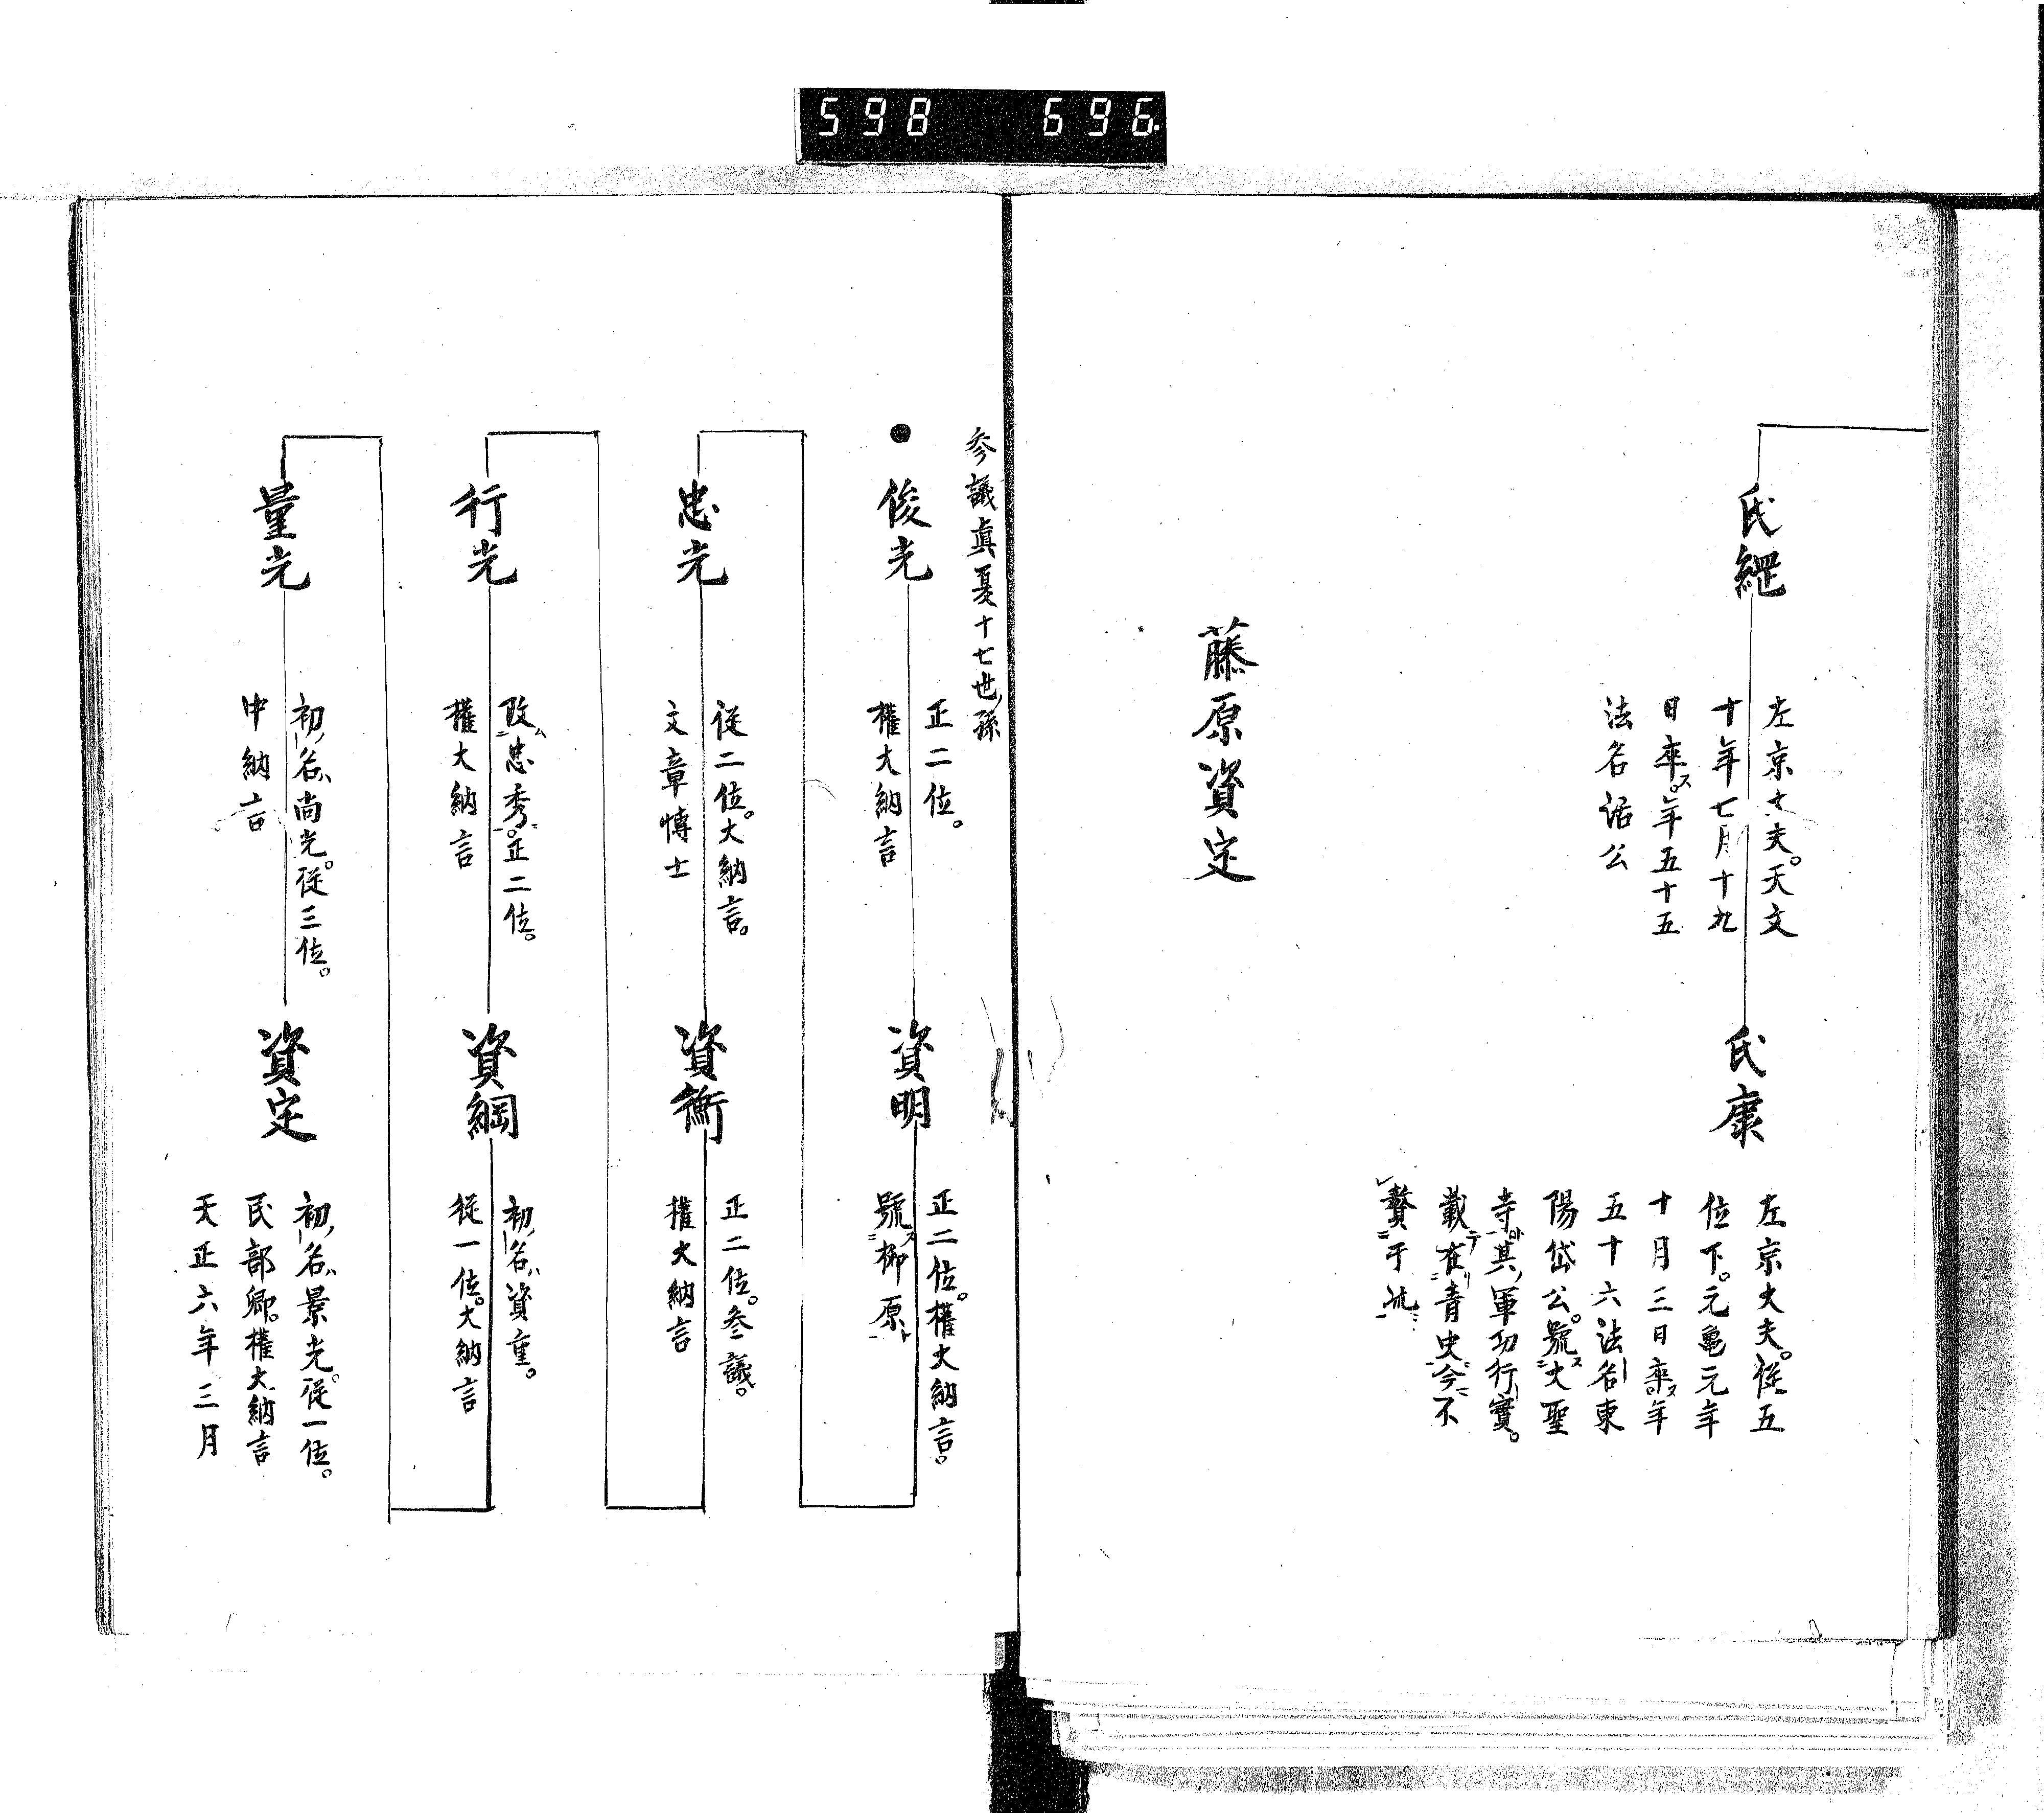 598 696
氏綱
左京大夫。天文
十年七月十九
日卒ス。年五十五
法名活公
氏康
左京大夫。従五
位下。元亀元年
十月三日卒ス。年
五十六法名東
陽岱公。號ス大聖
寺ト。其ノ軍功行實。
載テ在リ青史今不
贅于此
藤原資定
参議眞夏十七世ノ孫
俊光
正二位。
權大納言
資明
正二位。權大納言。
號ス柳原ト
忠光
従二位。大納言。
文章博士
資衡
正二位。叅議。
權大納言
行光
改ム忠秀ニ。正二位。
權大納言
資綱
初ノ名ハ資重。
従一位。大納言
量光
初ノ名ハ尚光。従三位。
中納言
資定
初ノ名ハ景光。従一位。
民部卿。權大納言
天正六年三月